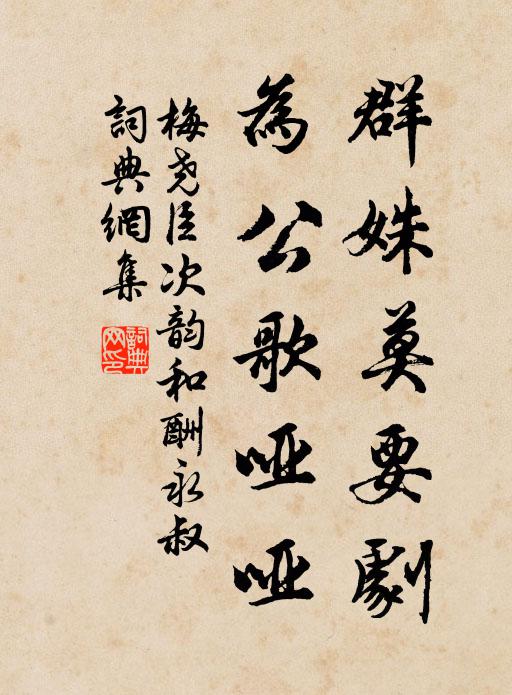 群姝莫要劇
為公歌哑哑
梅尧臣次韵和酬永叔
詞典網集
詞典网印